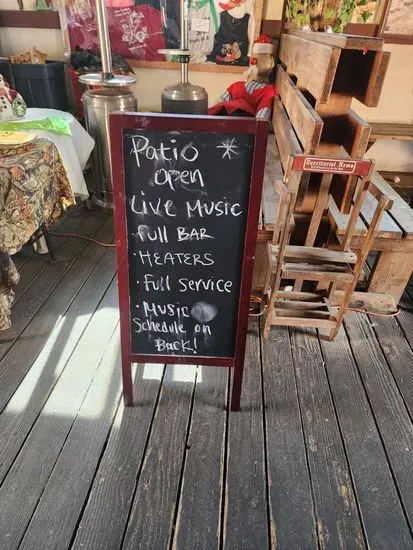 Patio
open
Live Music
• Full BAR
• HEATERS
• Full Service
• Music
Schedule on
Back!
Territorial News